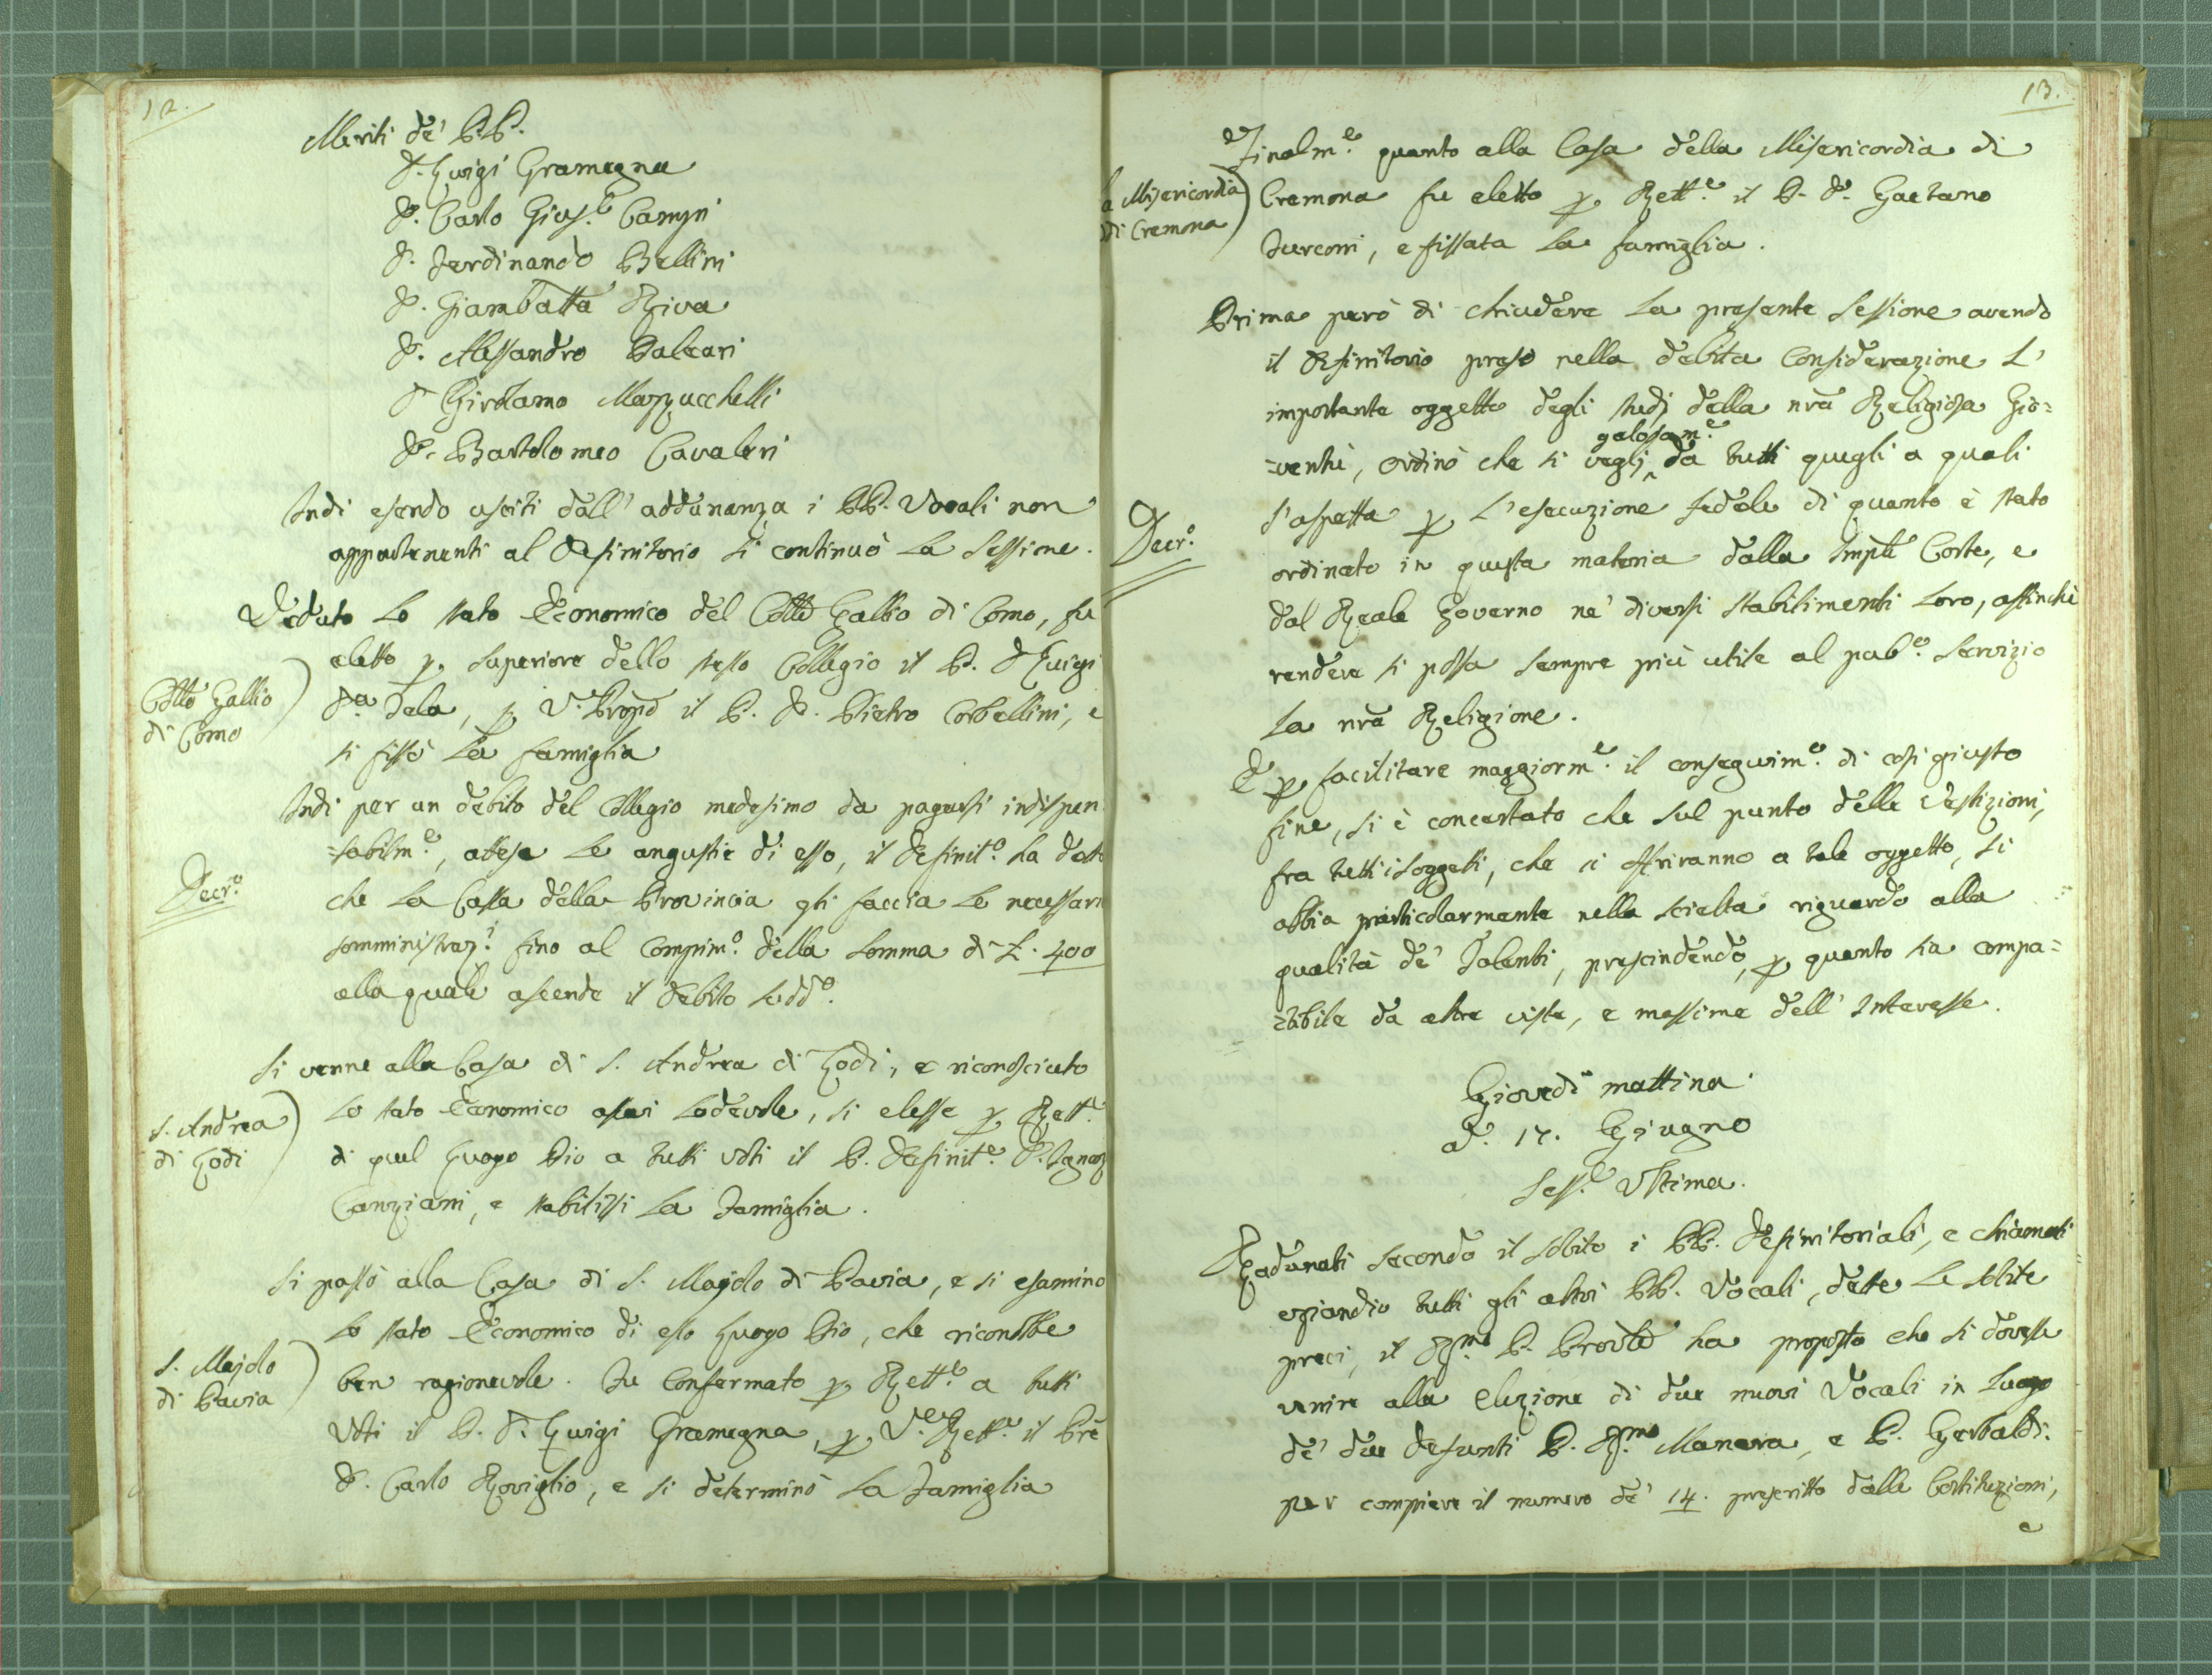 12.
Meriti de' PP.
D. Luigi Gramegna
D. Carlo Gius.e Campi
D. Ferdinando Bellini
D. Giambatta Riva
D. Alessandro Paleari
D Girolamo Mazzucchelli
D. Bartolomeo Cavaleri
Indi esendo usciti dall' addunanza i PP. Vocali non
appartenenti al Definitorio si continuò la Sessione.
Veduto lo stato Economico del Collo Gallio di Como, fu
eletto p. Superiore dello stesso Collegio il P. D Luigi
Collo Gallio
di Como
Dn Dela, p. V. Prepo il P. D. Pietro Corbellini, e
si fissò la famiglia
Indi per un debito del Collegio medesimo da pagarsi indispen
=sabilm.e, attese le angustie di esso, il Definit.o ha dett
Decr.o
che la Cassa della Provincia gli faccia le necessari
somministraz.i fino al compim.o della somma di L. 400
alla quale ascende il debito sudd.o
Si venne alla Casa di S. Andrea di Lodi, e riconosciuto
lo stato Economico assai lodevole, si elesse p. Rett.e
S. Andrea
di Lodi
di quel Luogo Pio a tutti voti il P. Definit.e D. Ignaz
Canziani, e stabilissi la Famiglia.
Si passò alla Casa di S. Majolo di Pavia, e si esaminò
lo stato Economico di esso Luogo Pio, che riconobbe
S. Majolo
di Pavia
ben ragionevole. Fu Confermato p. Rett.e a tutti
Voti il P. D. Luigi Gramegna, p. V.e Rett.e il Pre
D. Carlo Roviglio, e si determinò la Famiglia
13.
Finalm.e quanto alla Casa della Misericordia di
a Misericordia
di Cremona
Cremona fu eletto p. Rett.e il P. D. Gaetano
Turconi, e fissata la famiglia.
Prima però di chiudere la presente Sessione avendo
il Definitorio preso nella debita Considerazione l'
importante oggetto degli studj della nra Religiosa Gio=
gelosam.e
=ventù, ordinò che si vegli da tutti quegli a quali
Decr.o
s'aspetta p. l'esecuzione fedele di quanto è stato
ordinato in questa materia dalla Imple Corte, e
dal Reale Governo ne' diversi stabilimenti loro, affinchè
rendere si possa sempre più utile al pub.o servizio
la nra Religione.
E p. facilitare maggiorm.e il conseguim.o di così giusto
fine, si è concertato che sul punto delle vestizioni,
fra tutti i soggetti, che si offriranno a tale oggetto, si
abbia particolarmente nella scielta riguardo alla
qualità de' Talenti, prescindendo, p. quanto sia compa=
=tibile da altre viste, e massime dell' Interesse.
Giovedì mattina
a. 17. Giugno
Sess.e Ultima.
Radunati secondo il solito i PP. Definitoriali, e chiamati
eziandio tutti gli altri PP. Vocali, dette le solite
preci, il R.mo P. Provle ha proposto che si dovesse
venire alla elezione di due nuovi Vocali in luogo
de' due defunti P. R.mo Manara, e P. Gerbaldi.
per compiere il numero de' 14. prescritto dalle Costituzioni,
e